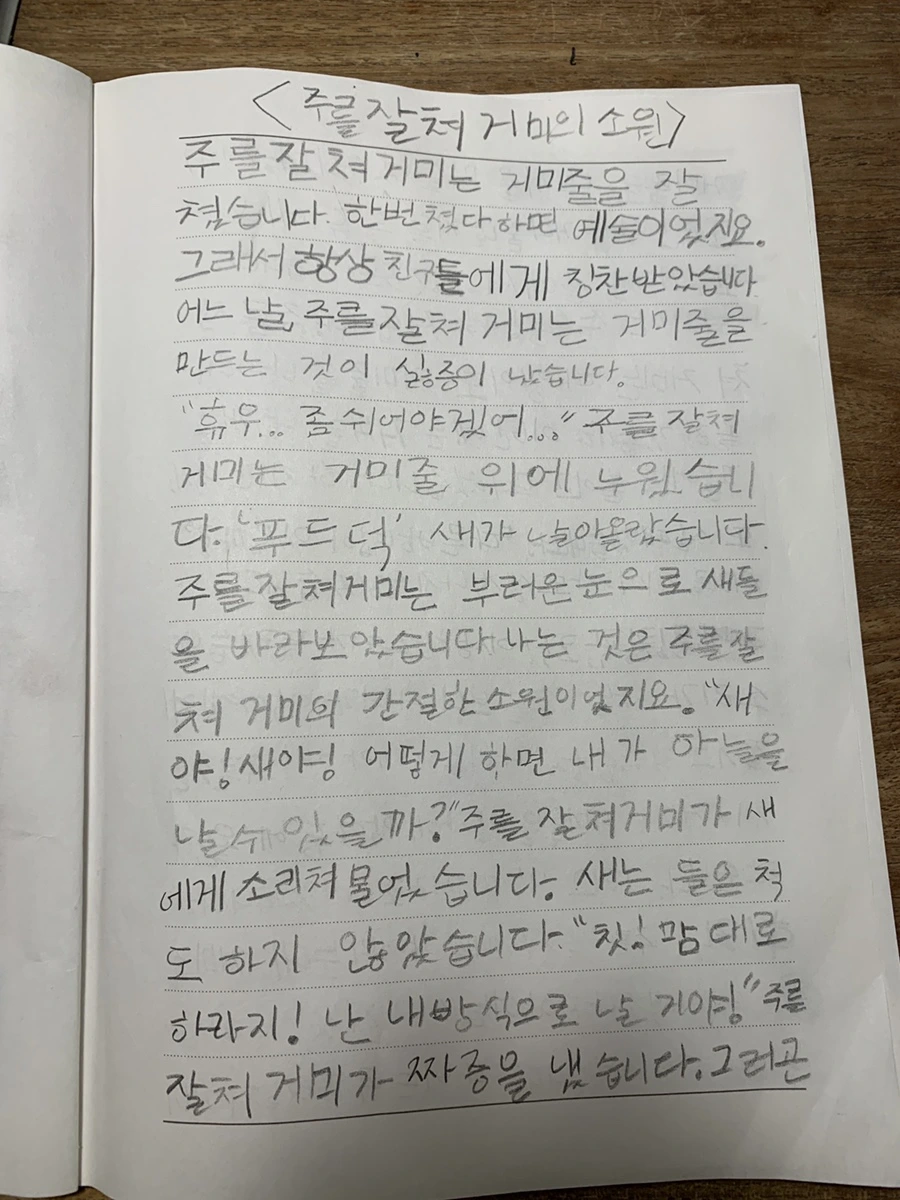 <주를잘쳐 거미의 소원>
주를잘쳐거미는 거미줄을 잘
쳤습니다. 한번 쳤다하면 예술이었지요.
그래서 항상 친구들에게 칭찬받았습니다
어느 날, 주를잘쳐 거미는 거미줄을
만드는 것이 싫증이 났습니다.
"휴우... 좀 쉬어야겠어..." 주를잘쳐
거미는 거미줄 위에 누웠습니
다. '푸드덕' 새가 날아올랐습니다.
주를잘쳐거미는 부러운 눈으로 새들
을 바라보았습니다. 나는 것은 주를잘
쳐 거미의 간절한 소원이었지요. "새
야! 새야! 어떻게 하면 내가 하늘을
날 수 있을까?" 주를잘쳐거미가 새
에게 소리쳐 물었습니다. 새는 들은 척
도 하지 않았습니다. "칫! 맘대로
하라지! 난 내방식으로 날 거야!" 주를
잘쳐 거미가 짜증을 냈습니다. 그러곤